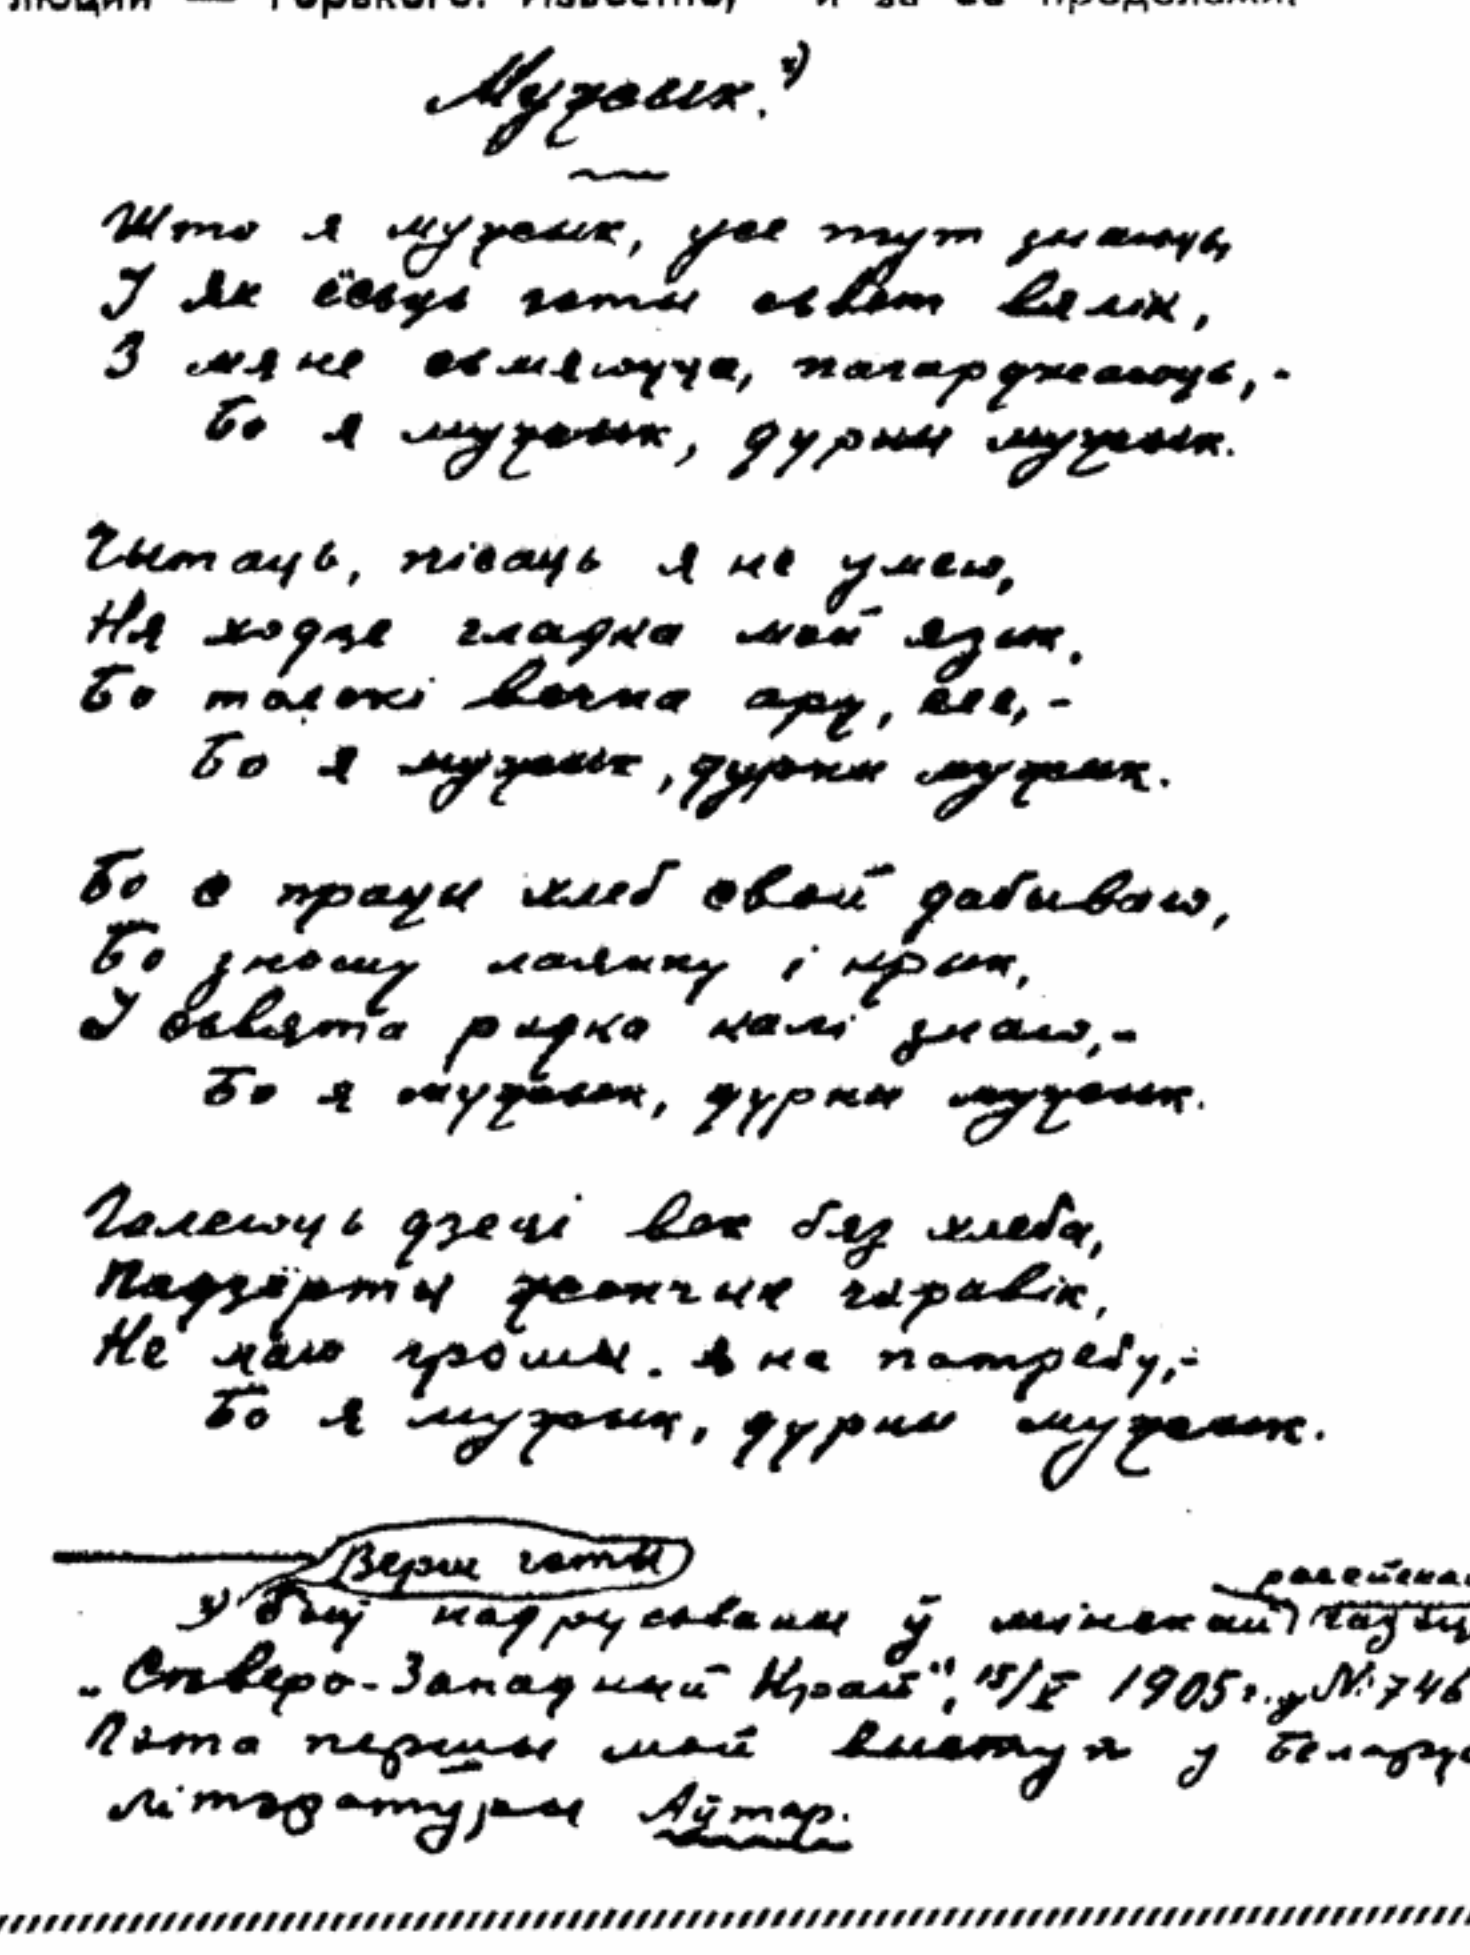 люции — Горького. Известно, и за ее пределами.
Мужык. х)
Што я мужык, усе тут знаюць,
І як ёсьць гэты сьвет вялік,
З мяне сьмяюцца, пагарджаюць,-
Бо я мужык, дурны мужык.
Чытаць, пісаць я не умею,
Ня ходзе гладка мой язык,
Бо толькі вечна ару, сею,-
Бо я мужык, дурны мужык.
Бо с працы хлеб свой дабываю,
Бо зношу лаянку і крык,
І сьвята рэдка калі знаю,-
Бо я мужык, дурны мужык.
Галеюць дзеці век бяз хлеба,
Падзёрты жончын чаравік,
Не маю грошы на патрэбу,-
Бо я мужык, дурны мужык.
Верш гэты
х) быў надрукованы ў мінскай расейскай газэц
„Сѣверо-Западный Край", 15/V 1905 г. у № 746
Гэта першы мой выступ у беларус
літэратуры Аўтар.